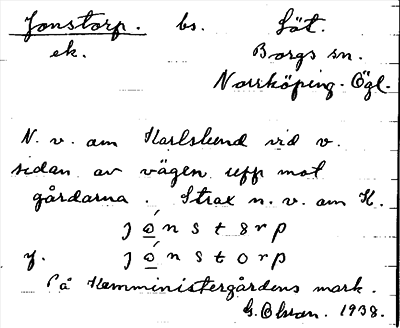 Jonstorp. bs. Löt.
ek. Borgs sn.
Norrköping. Ögl.
N. v. om Karlslund vid v.
sidan av vägen upp mot
gårdarna. Strax n. v. om K.
jónstorp
y. jónstorp
På Komministergårdens mark.
G. Olsson. 1938.